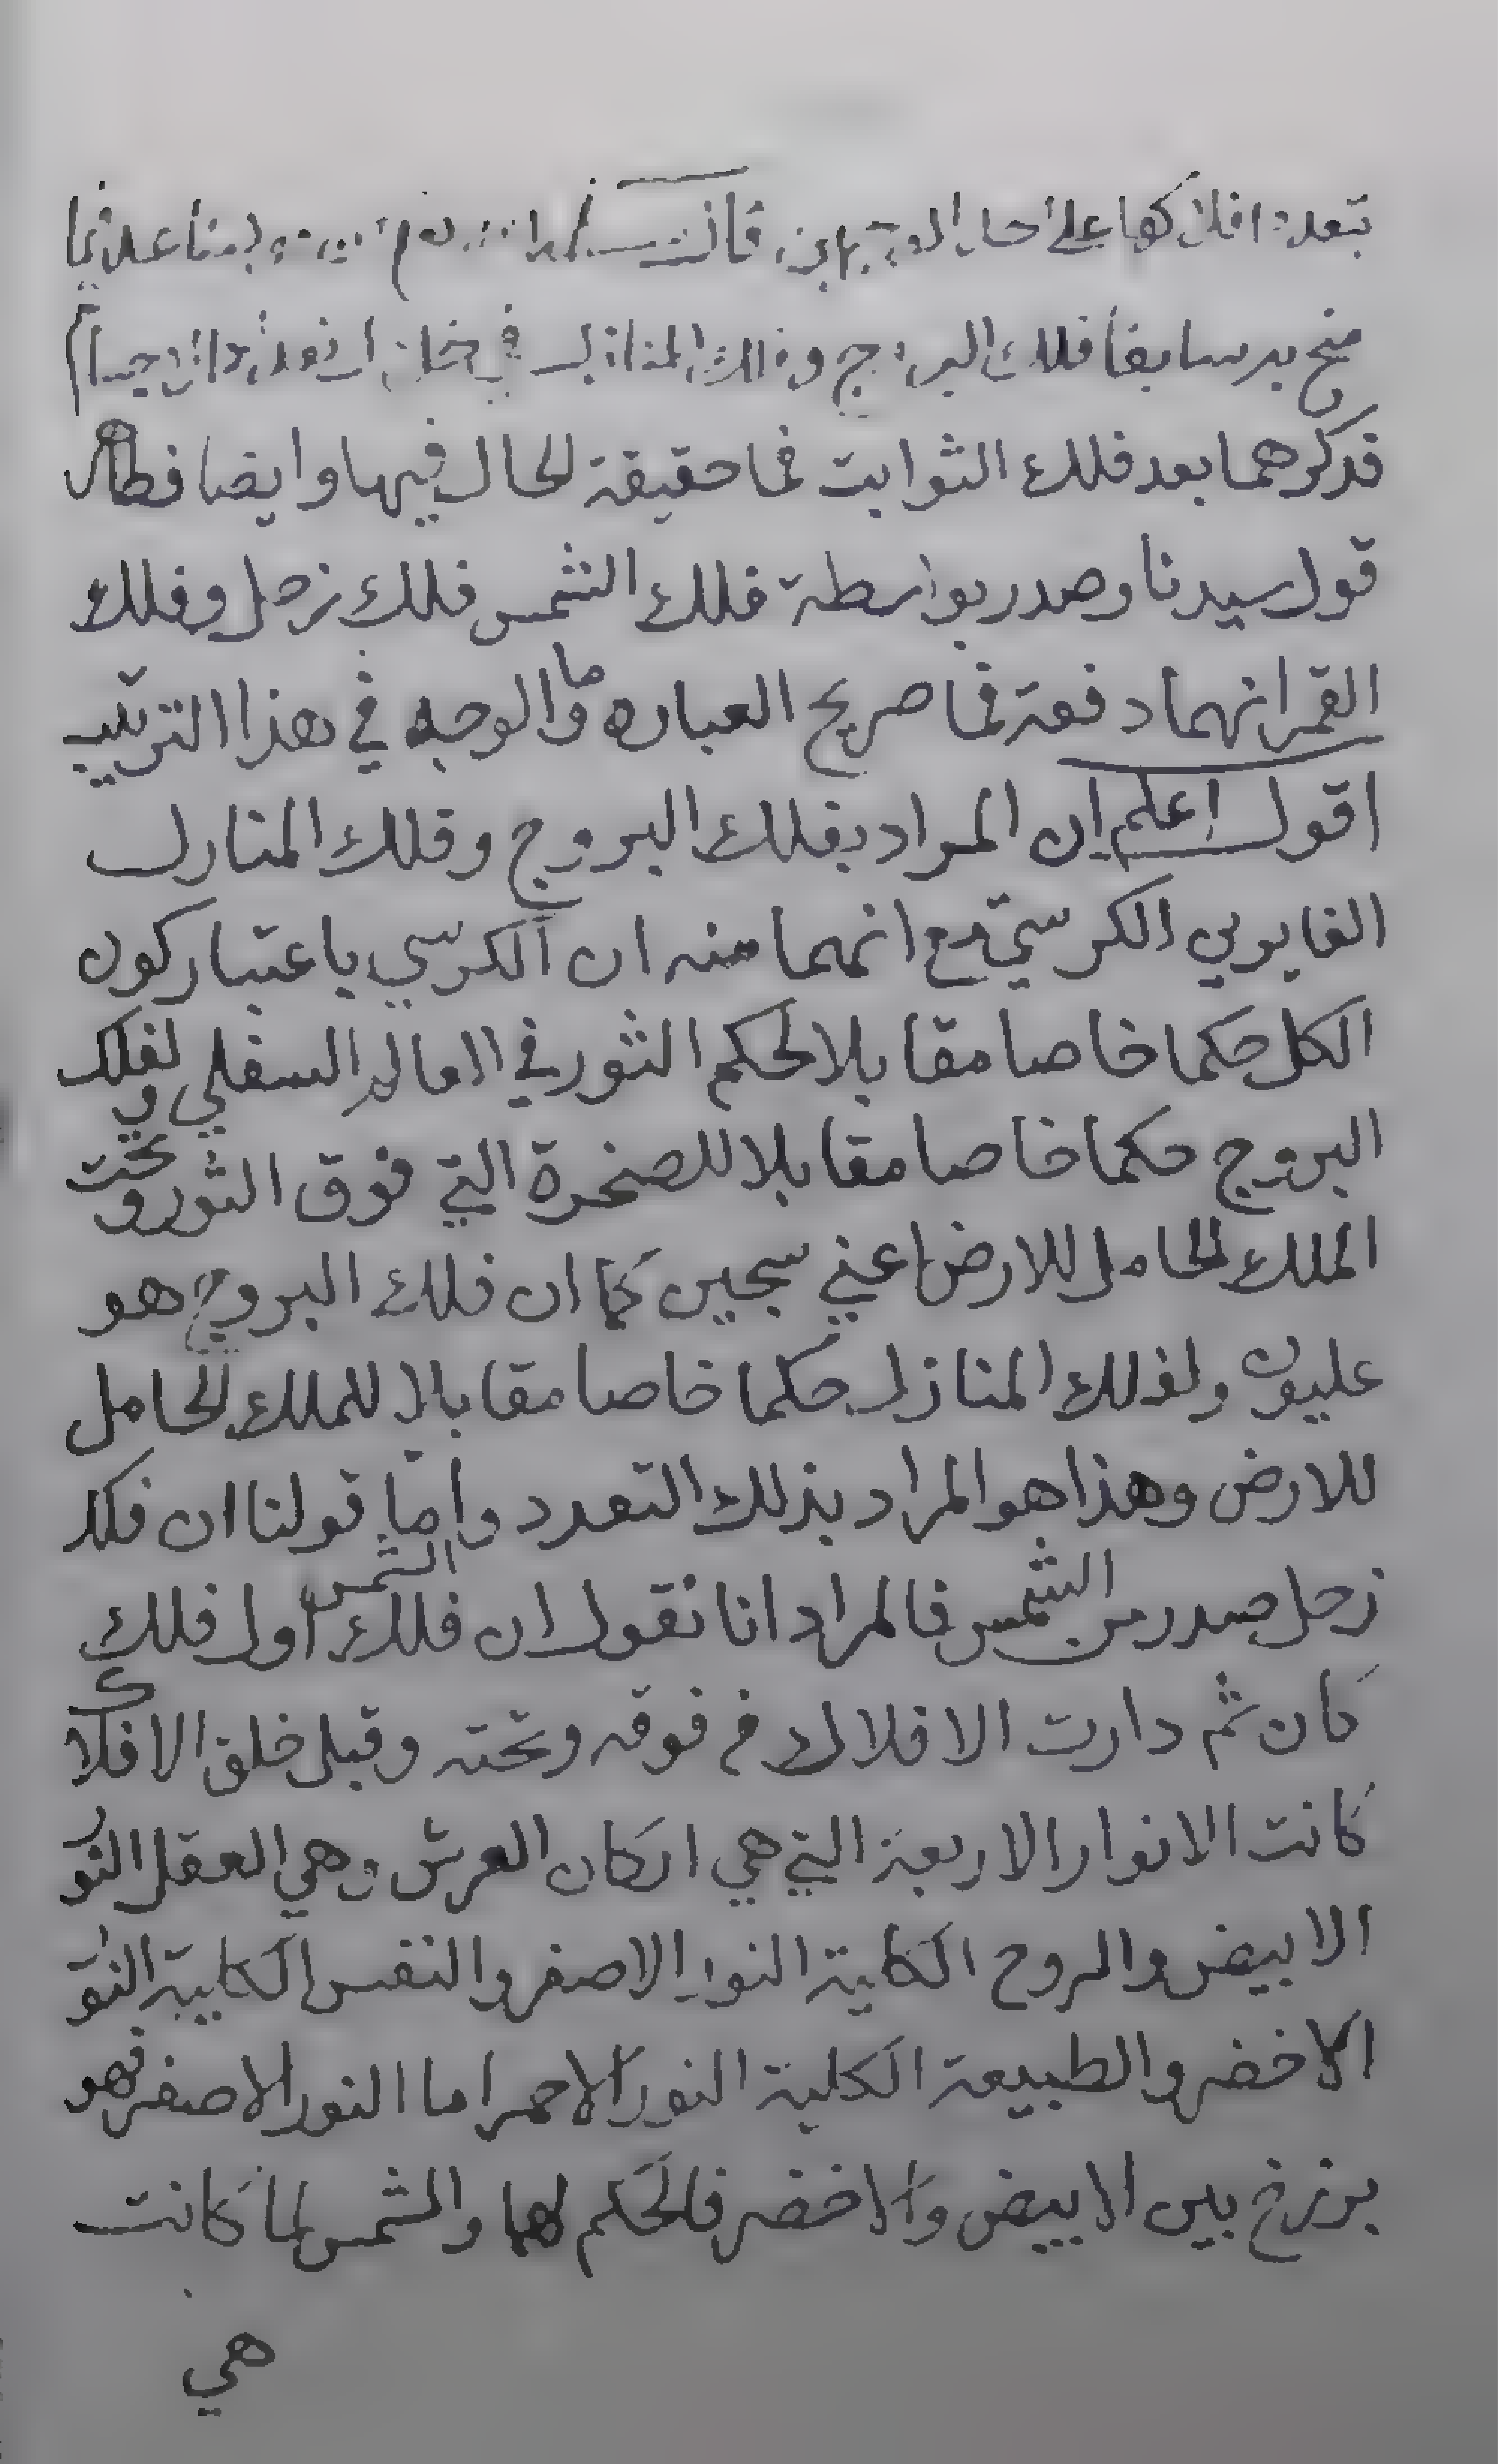 افلاكها على
سابقا فلك البروج و المنازل في
فذكرهما بعد فلك الثوابت فما حقيقة الحال فيها وايضا فظاهر
قول سيدنا وصدر بواسطة فلك الشمس فلك زحل وفلك
القمر انهما دفعة فما صريح العباره وما الوجه في هذا الترتيب
اقول اعلم ان المراد بفلك البروج وفلك المنازل
الكرسي مع انهما منه ان الكرسي باعتبار كون
الكل حكما خاصا مقابلا لحكم الثور في السفلي ولفلك
البروج حكما خاصا مقابلا للصخرة التي فوق الثور وتحت
الملك الحامل للارض اعني سجين كما ان فلك البروج هو
عليون ولفلك المنازل حكما خاصا مقابلا للملك الحامل
للارض وهذا هو المراد بذلك التعدد واما قولنا ان فلك
زحل صدر من الشمس فالمراد انا نقول ان فلك الشمس اول فلك
كان ثم دارت الافلاك من فوقه وتحته وقبل خلق الافلاك
كانت الانوار الاربعة التي هي اركان العرش وهي العقل النور
الابيض والروح الكلية النور الاصفر والنفس الكلية النور
الاخضر والطبيعة الكلية النور الاحمر اما النور الاصفر فهو
برزخ بين الابيض والاخضر فالحكم لهما والشمس لما كانت
هي